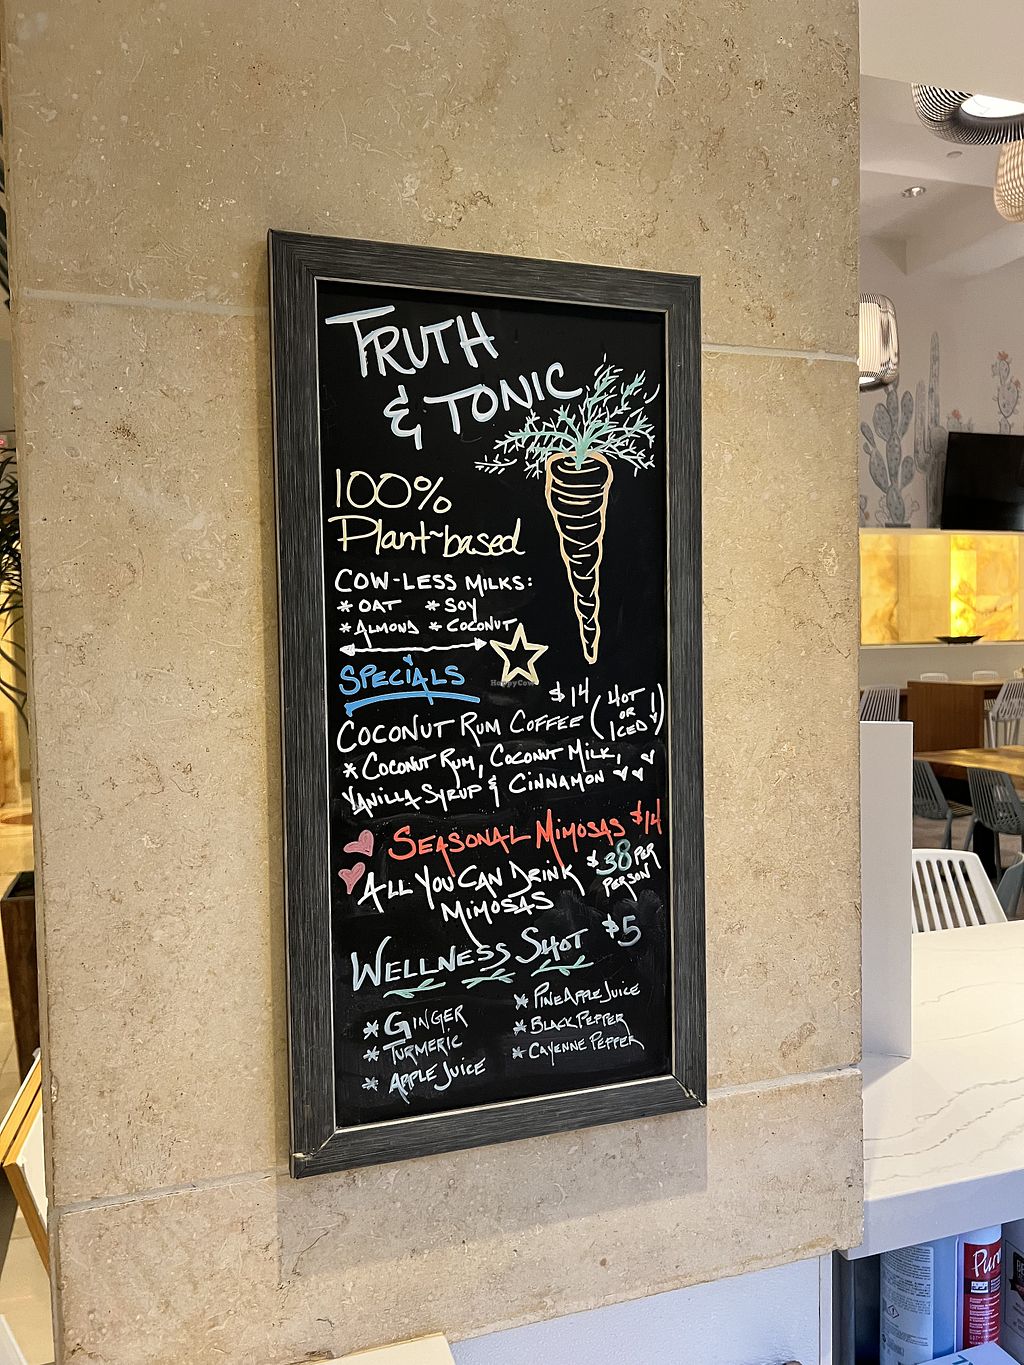 TRUTH
& TONIC
100%
Plant-based
COW-LESS MILKS:
* OAT * SOY
* ALMOND * COCONUT
HappyCow
SPECIALS
$14
COCONUT RUM COFFEE (HOT OR ICED!)
* COCONUT RUM, COCONUT MILK,
VANILLA SYRUP & CINNAMON
SEASONAL MIMOSAS $14
ALL YOU CAN DRINK $38 PER PERSON
MIMOSAS
WELLNESS SHOT $5
* GINGER
* TURMERIC
* APPLE JUICE
* PINEAPPLE JUICE
* BLACK PEPPER
* CAYENNE PEPPER